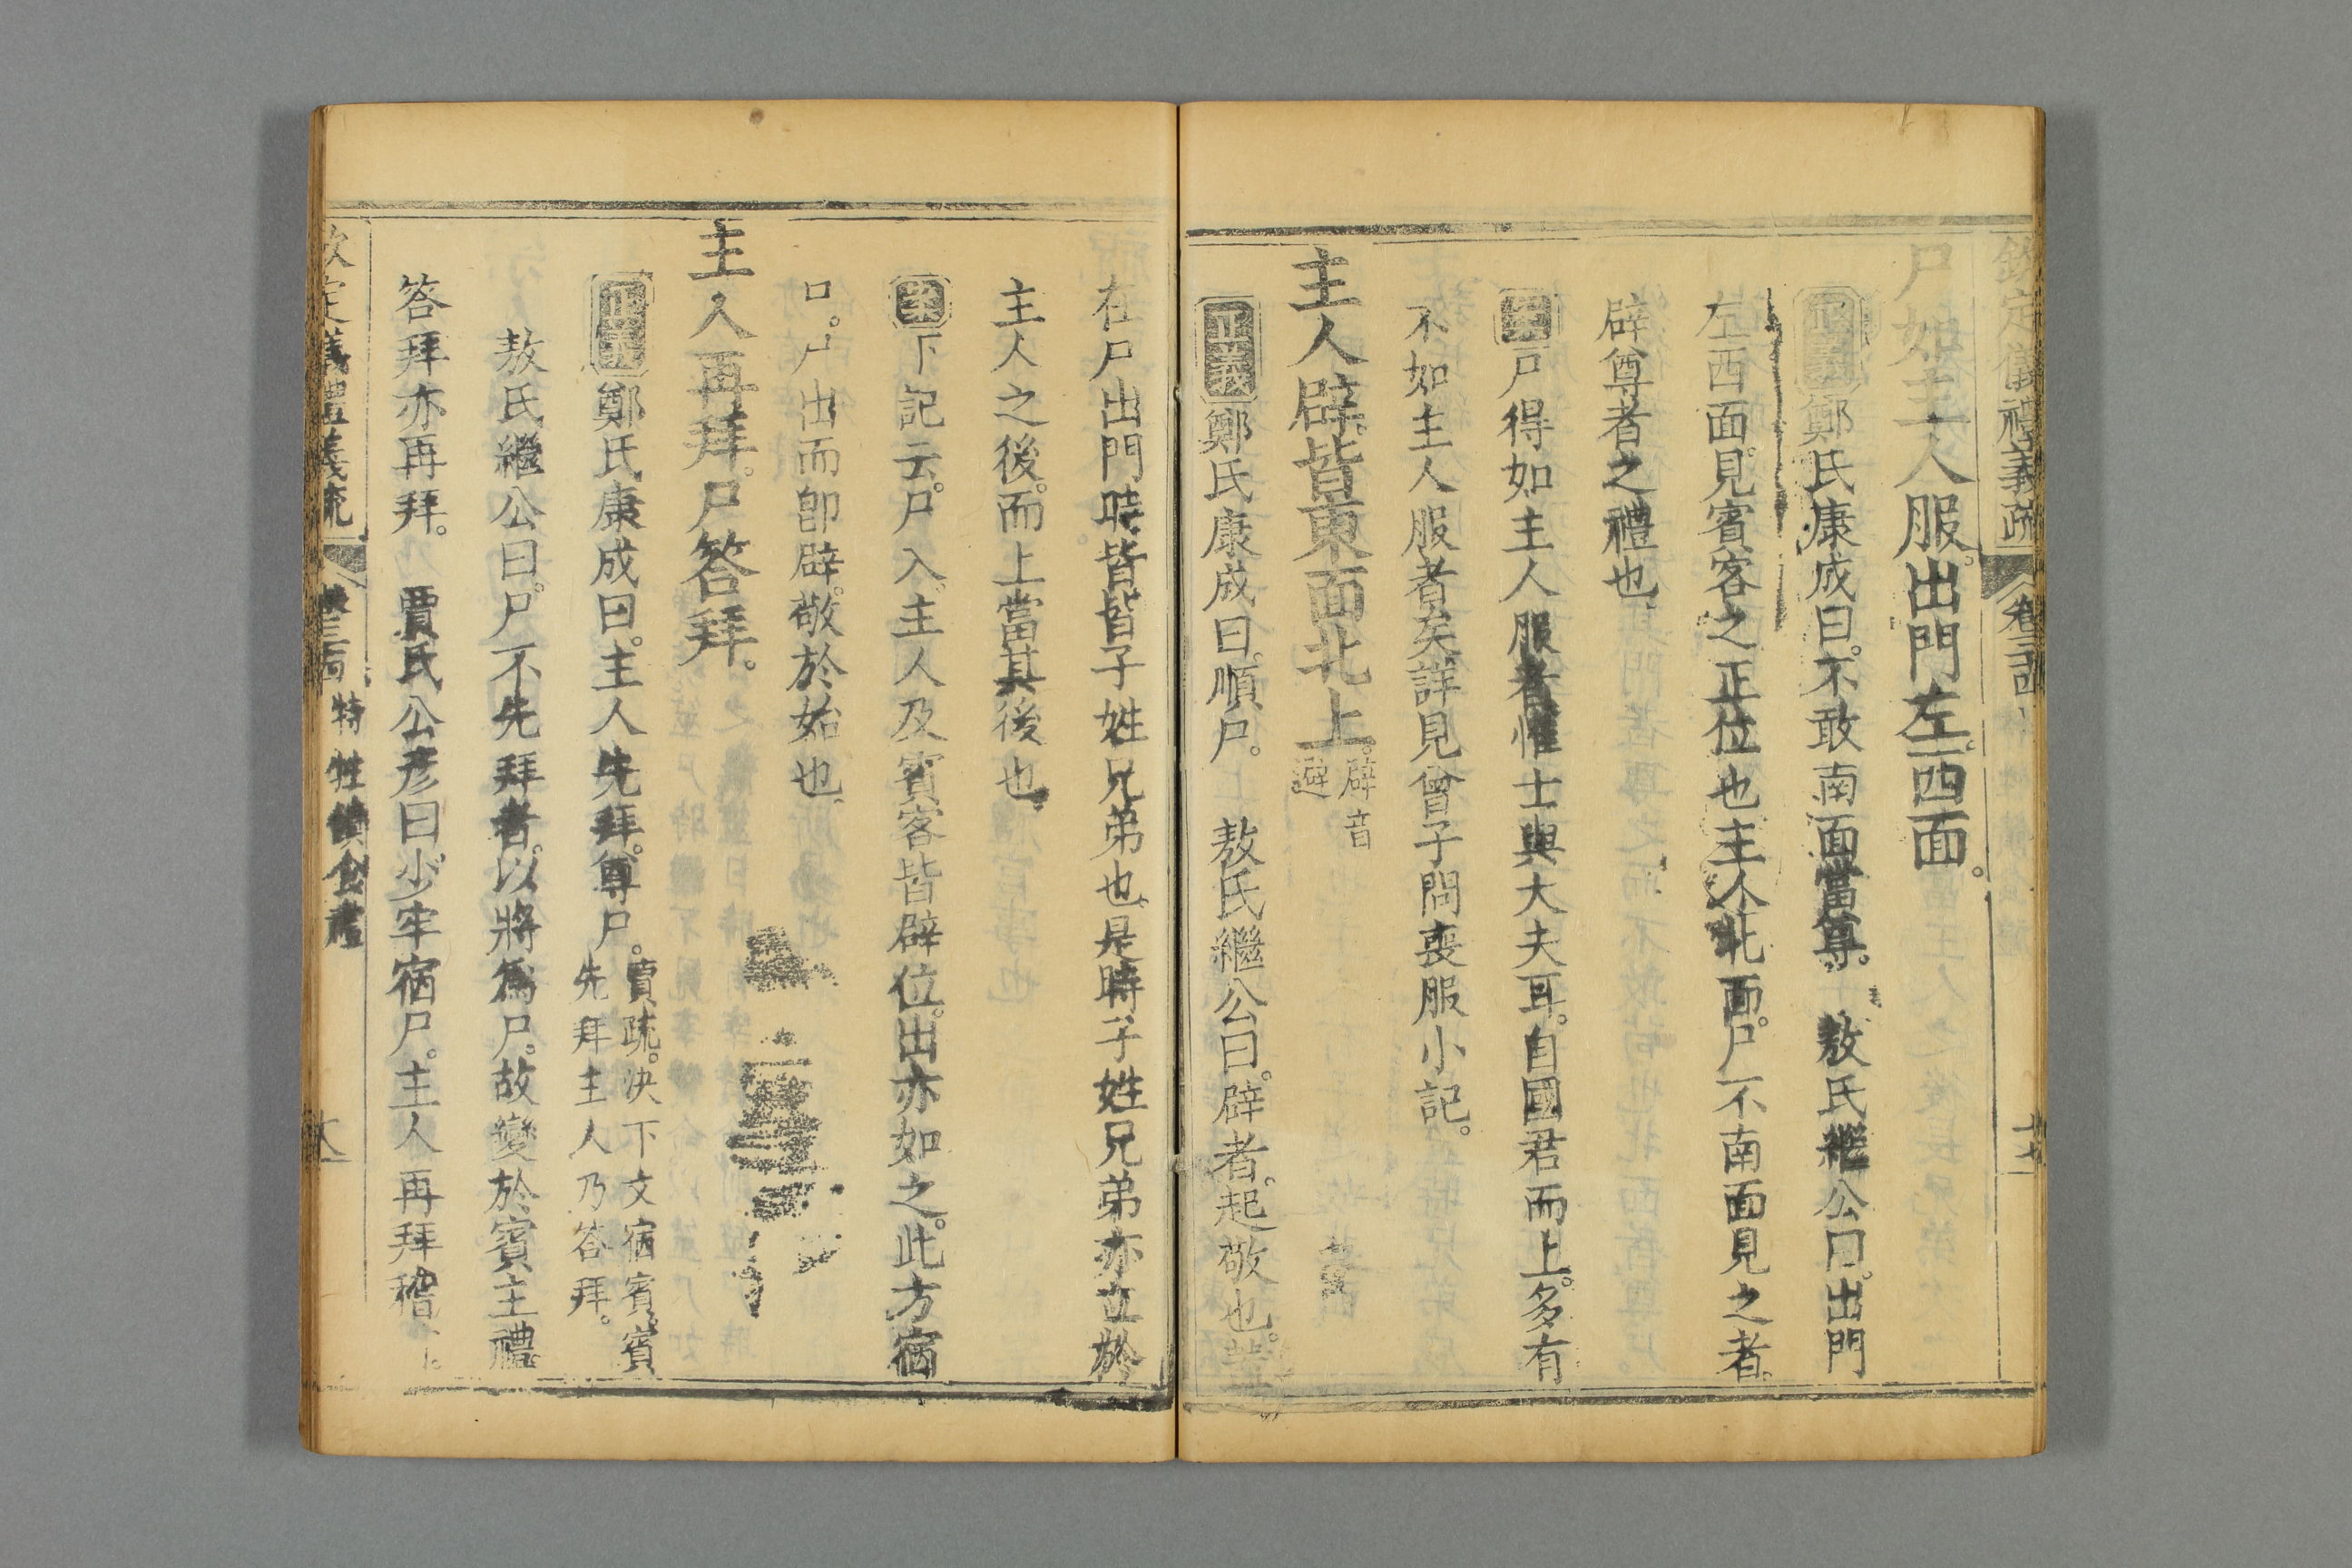 欽定儀禮義疏 卷三十四 十七
尸如主人服。出門左。西面。
正義 鄭氏康成曰。不敢南面當尊。 敖氏繼公曰。出門
左西面。見賓客之正位也。主人北面。尸不南面見之者。
辟尊者之禮也。
案 尸得如主人服者。惟士與大夫耳。自國君而上。多有
不如主人服者矣。詳見曾子問喪服小記。
主人辟。皆東面北上。辟音避
正義 鄭氏康成曰。順尸。 敖氏繼公曰。辟者。起敬也。皆
在尸出門時。皆皆子姓兄弟也。是時子姓兄弟亦立於
主人之後。而上當其後也。
案 下記云。尸入。主人及賓客皆辟位。出亦如之。此方宿
尸。尸出而卽辟。敬於始也。
主人再拜。尸答拜。
正義 鄭氏康成曰。主人先拜。尊尸。賈疏。決下文宿賓。賓先拜主人乃答拜。
敖氏繼公曰。尸不先拜者。以將為尸。故變於賓主禮。
答拜亦再拜。 賈氏公彥曰。少牢宿尸。主人再拜稽
欽定儀禮義疏 特牲饋食禮